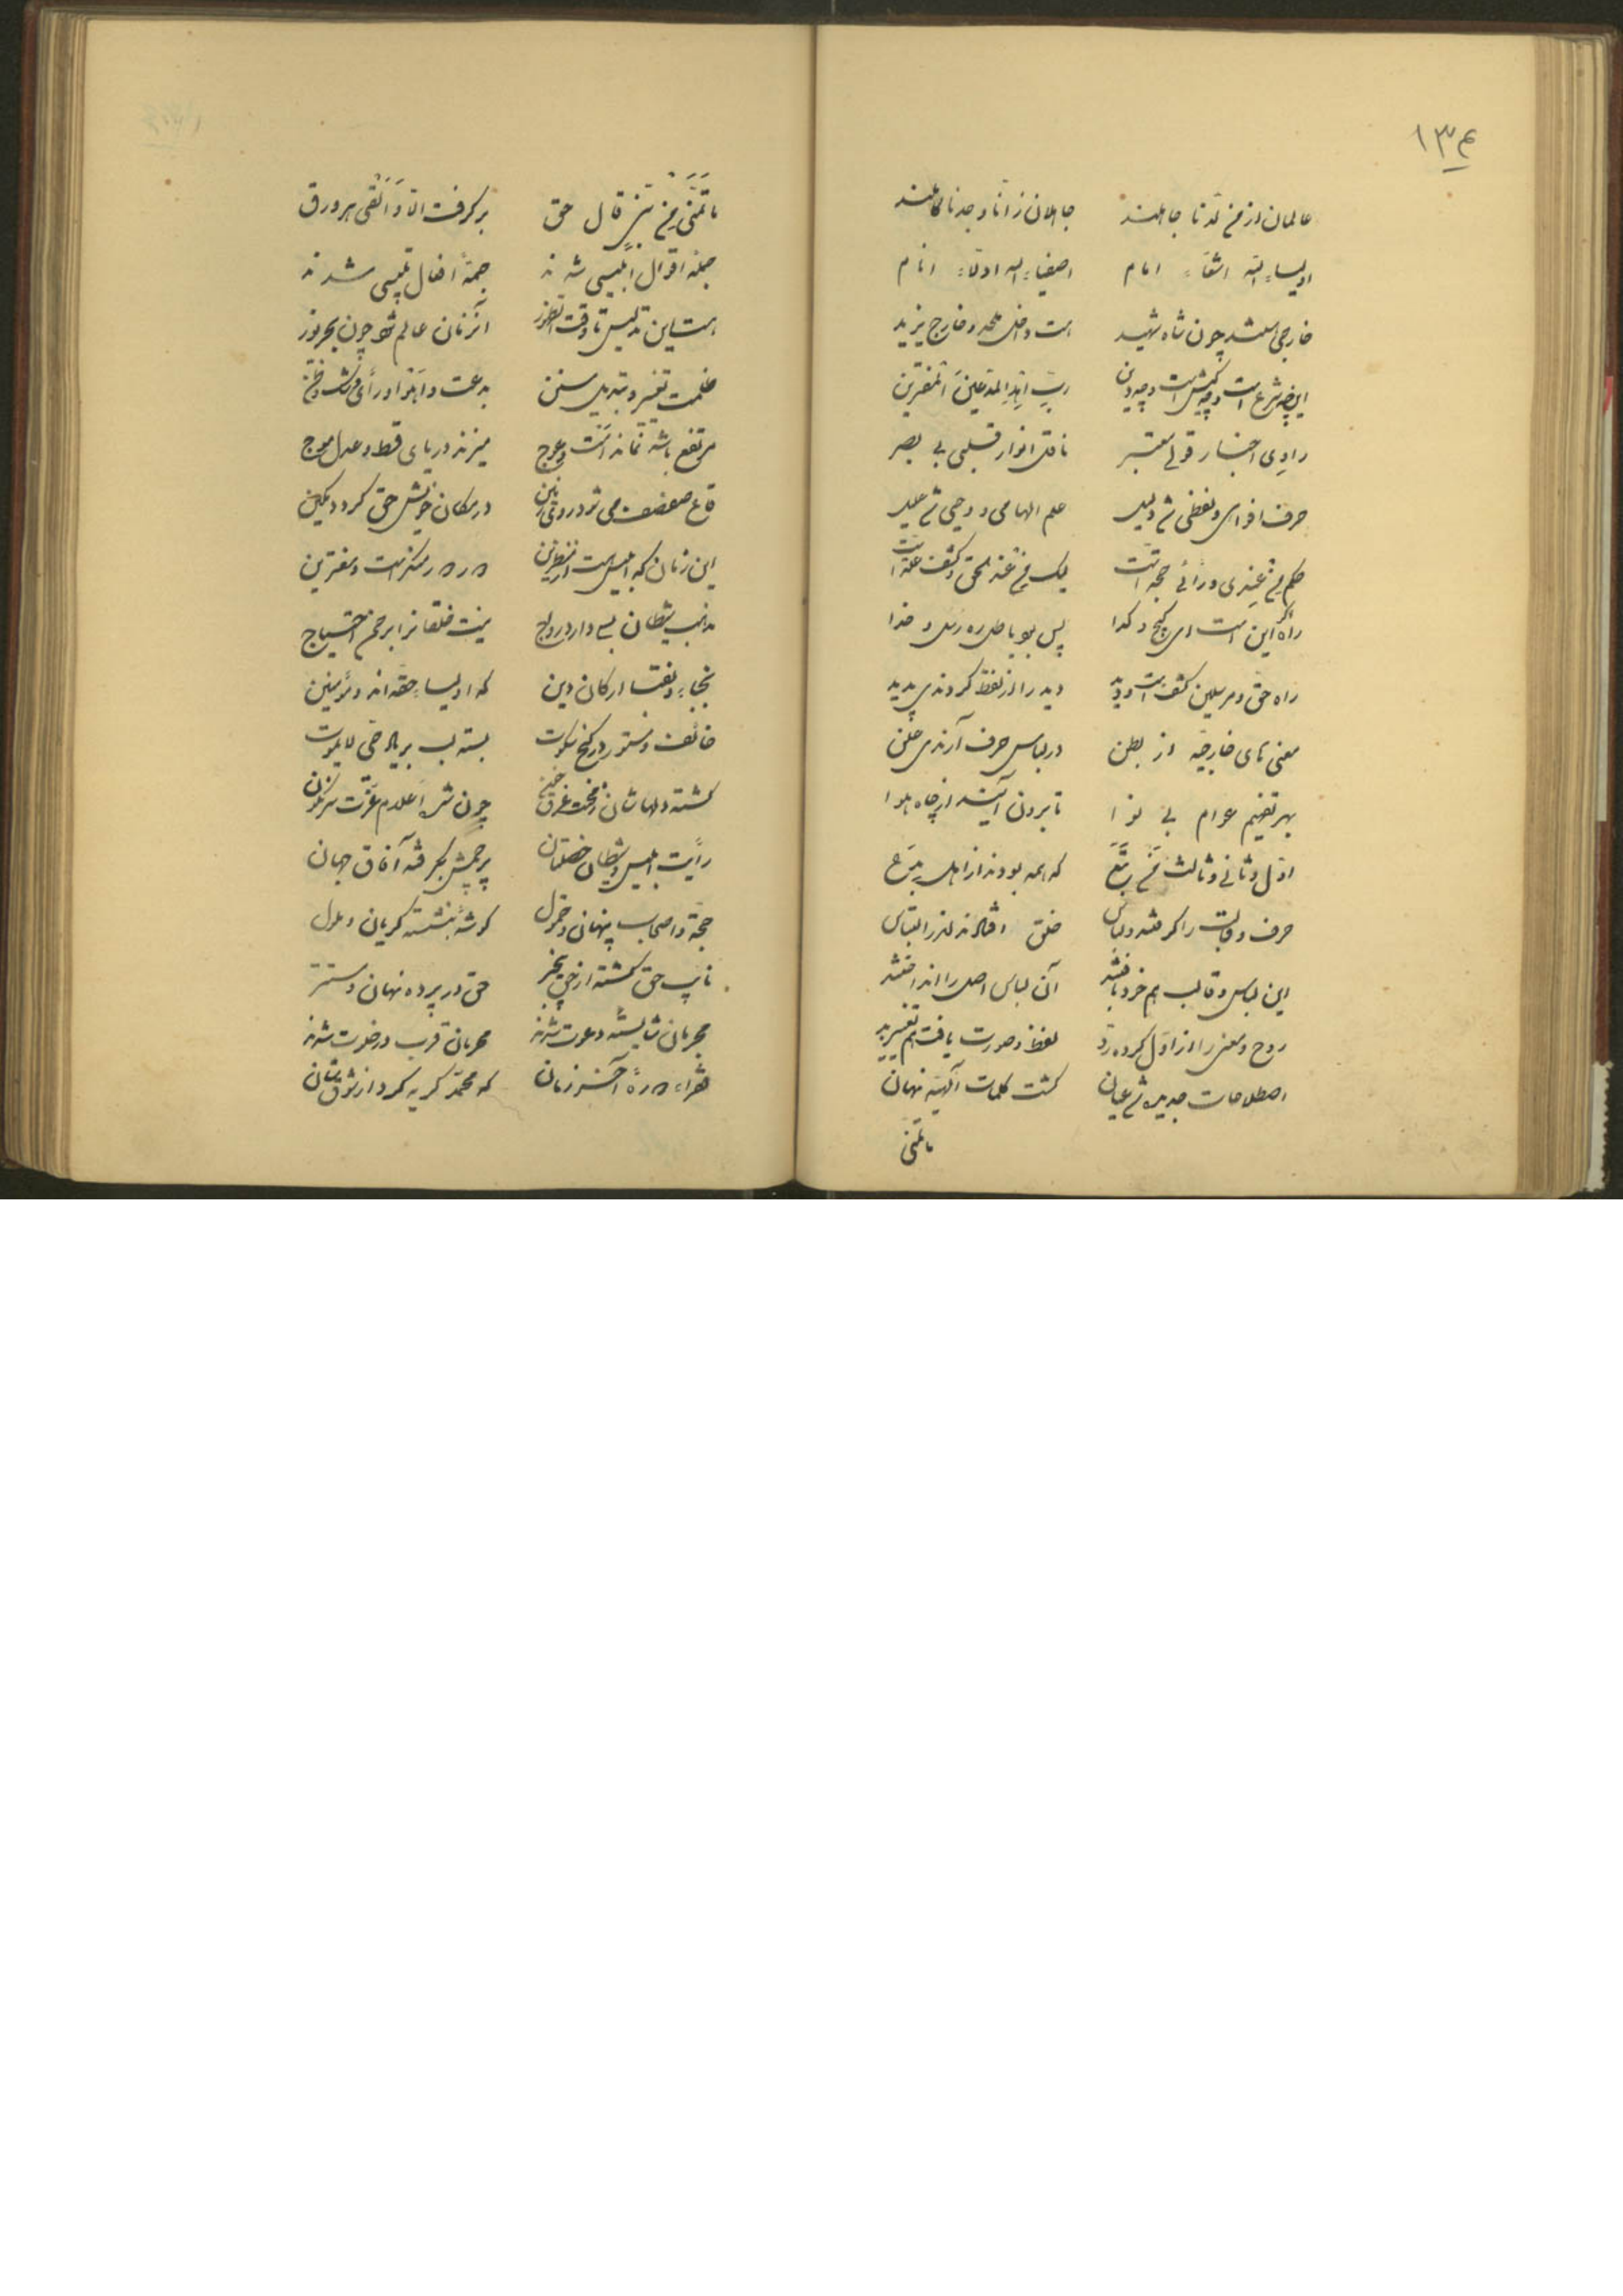 ۱۳۴
عالمان از من لدنا جاهلند جاهلان ز انا وجدنا کاملند
اولیاء الله اشقاء امام اصفیاء الله اولاء انام
خارجی شد چون شاه شهید است داخل ملحد و خارج یزید
این چه شرع است و چه کیش است و چه دین ربّ المدعین المفترین
راوی اخبار قولی معتبر ناقل انوار قلبی بی بصر
حرف افواهی و لفظی شد دلیل علم الهامی و وحیی شد علیل
حکم من عندی و رائی حجة است لیک من عند الحق و کشف علة است
راه این است ای گیج و گدا پس بود باطل ره رسل و خدا
راه حق و مرسلین کشف است و دید دید را از لفظ کردندی پدید
معنی های خارجه از بطن در لباس حرف آرندی علن
بهر تفهیم عوام بی نوا تا برون آیند از چاه هوا
اول و ثانی و ثالث من تبع که همه بودند از اهل بدع
حرف و قالب را گرفتند و لباس خلق افتادند اندر التباس
این لباس و قالب هم خود بافتند آن لباس اصل را انداختند
روح و معنی را از اول کرده رد لفظ و صورت یافت هم تغییر بد
اصطلاحات جدیده شد عیان گشت کلمات الهیه نهان
ما تمنی
ما تمنی من نبی قال حق بر گرفت الا و القی هر ورق
جمله اقوال ابلیسی شدند جمله افعال تلبیسی شدند
هست این تدلیس تا وقت ظهور آنزمان عالم شود چون بحر نور
ظلمت تغییر و تبدیل سنن بدعت و اهوا و رأی و شک و ظن
مرتفع باشد نماند امت و عوج میزند دریای قسط و عدل موج
قاع صفصف می شود روی زمین در مکان خویش حق گردد مکین
این زمان که ابلیس است از منظرین دوره منکر است و مفترین
مذهب شیطان بسی دارد رواج نیست خلقانرا بر حق احتیاج
نجباء و نقبا ارکان دین که اولیاء حقه اند و مؤمنین
خائف و مستور در کنج سکوت بسته لب بر یاد حی لا یموت
گشته دلهاشان در محنت غرق خون چون شد اعلام عزت سرنگون
رأیت ابلیس و شیطان خصلتان پرچمش بگرفته آفاق جهان
حجة و اصحاب پنهان و خمول گوشه بنشسته گریان و ملول
نایب حق گشته از حق بیخبر حق در پرده نهان و مستتر
مجرمان شایسته دعوت شدند محرمان قرب در خلوت شدند
دوره آخر زمان که محمد گریه کرد از شوقشان